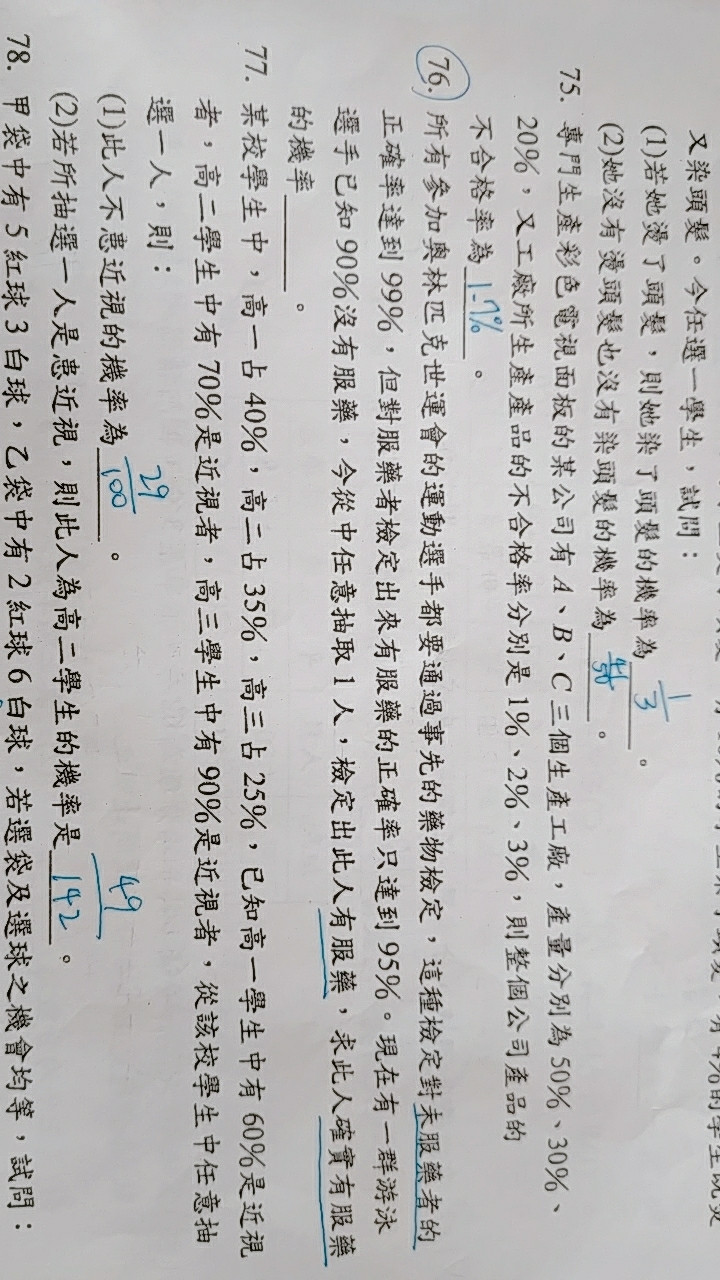 又染頭髮。今任選一學生,試問:
(1)若她燙了頭髮,則她染了頭髮的機率為 1/3 。
(2)她沒有燙頭髮也沒有染頭髮的機率為 。
75. 專門生產彩色電視面板的某公司有 A、B、C 三個生產工廠,產量分別為 50%、30%、
20%,又工廠所生產產品的不合格率分別是 1%、2%、3%,則整個公司產品的
不合格率為 1.7% 。
76. 所有參加奧林匹克世運會的運動選手都要通過事先的藥物檢定,這種檢定對未服藥者的
正確率達到 99%,但對服藥者檢定出來有服藥的正確率只達到 95%。現在有一群游泳
選手已知 90%沒有服藥,今從中任意抽取 1 人,檢定出此人有服藥,求此人確實有服藥
的機率 。
77. 某校學生中,高一占 40%,高二占 35%,高三占 25%,已知高一學生中有 60%是近視
者,高二學生中有 70%是近視者,高三學生中有 90%是近視者,從該校學生中任意抽
選一人,則:
(1)此人不患近視的機率為 29/100 。
(2)若所抽選一人是患近視,則此人為高二學生的機率是 49/142 。
78. 甲袋中有 5 紅球 3 白球,乙袋中有 2 紅球 6 白球,若選袋及選球之機會均等,試問: